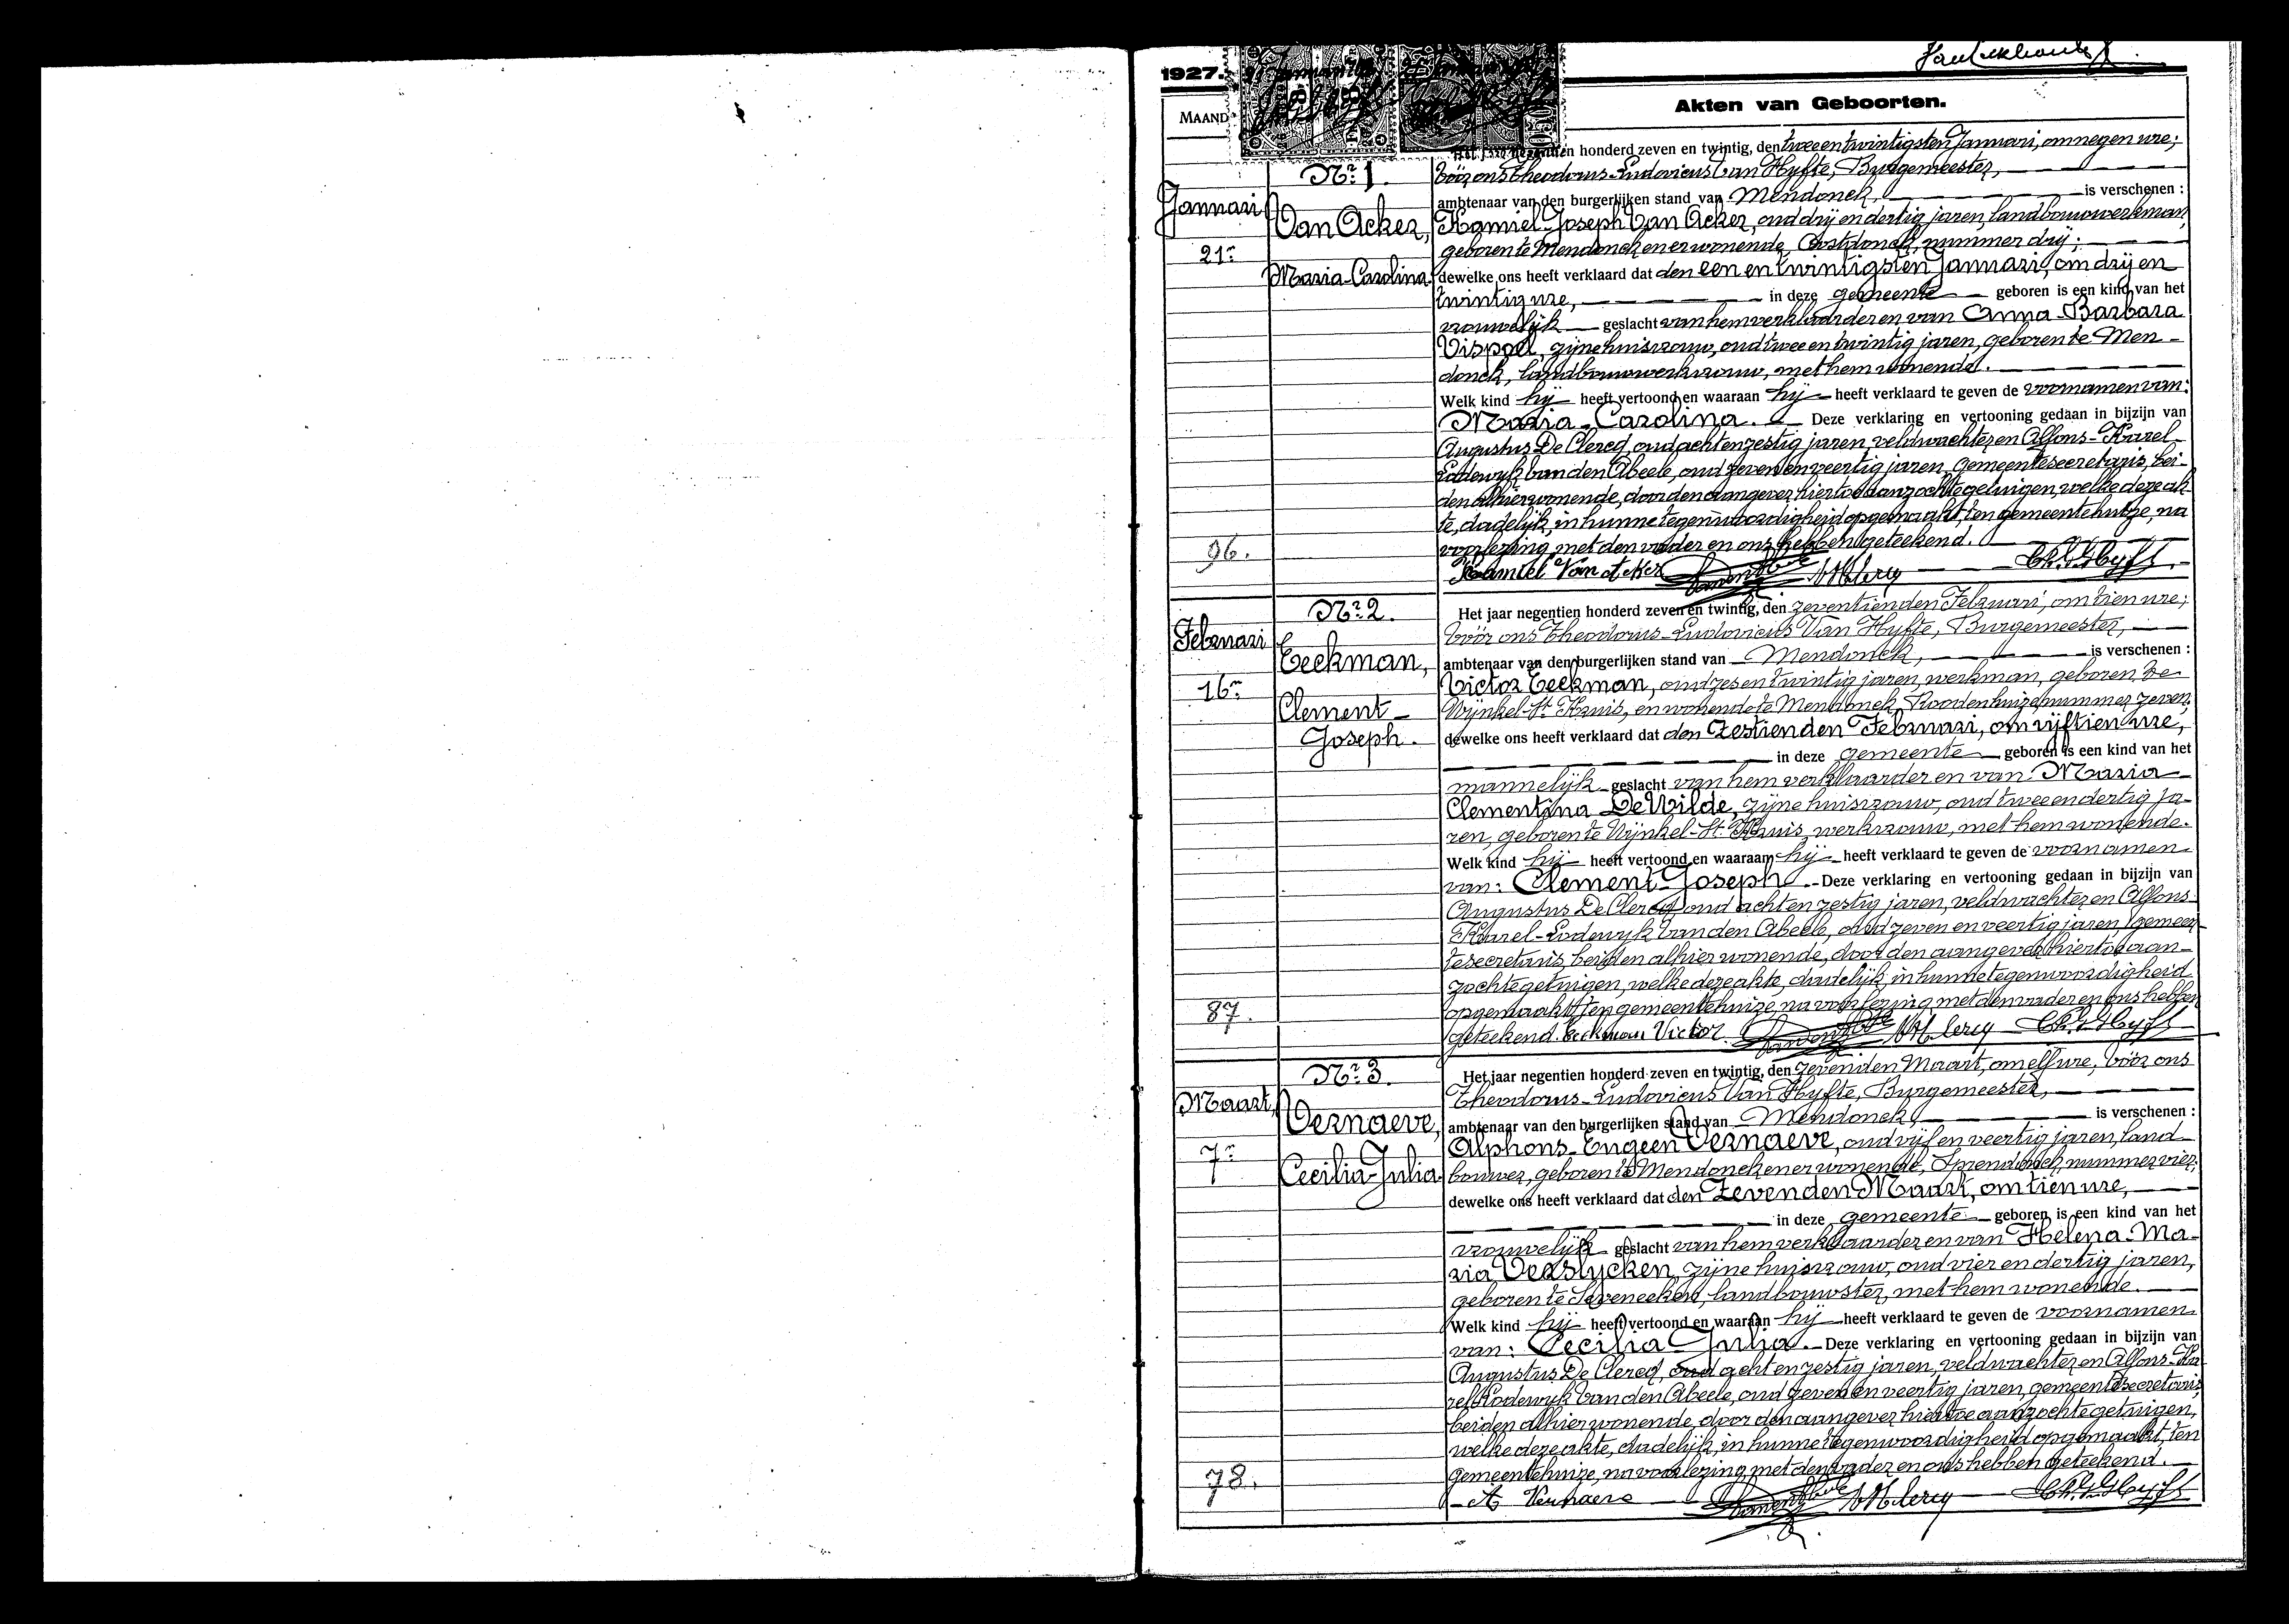 1927.
Akten van Geboorten.
MAAND
honderd zeven en twintig, den twee en twintigsten Januari, om negen ure;
Nr. 1.
vóór ons Theodorus-Ludovicus Van Hyfte, Burgemeester,
Januari
ambtenaar van den burgerlijken stand van Mendonck, is verschenen :
Van Acker,
Kamiel-Joseph Van Acker, oud drij en dertig jaren, landbouwwerkman,
21n
geboren te Mendonck en er wonende, Oostdonck, nummer drij;
Maria-Carolina.
dewelke ons heeft verklaard dat den een en twintigsten Januari, om drij en
twintig ure, in deze gemeente geboren is een kind van het
vrouwelijk geslacht van hem verklaarder en van Anna-Barbara
Vispoel, zijne huisvrouw, oud twee en twintig jaren, geboren te Men-
donck, landbouwwerkvrouw, met hem wonende.
Welk kind hij heeft vertoond en waaraan hij heeft verklaard te geven de voornamen van:
Maria-Carolina. Deze verklaring en vertooning gedaan in bijzijn van
Augustus De Clercq, oud acht en zestig jaren, veldwachter en Alfons-Karel-
Lodewijk Van den Abeele, oud zeven en veertig jaren, gemeentesecretaris, bei-
den alhier wonende, door den aangever hiertoe aanzochte getuigen, welke deze ak-
te, dadelijk, in hunne tegenwoordigheid opgemaakt, ten gemeentehuize, na
96.
voorlezing, met den vader en ons hebben geteekend.
Kamiel Van Acker
Nr. 2.
Het jaar negentien honderd zeven en twintig, den zeventienden Februari, om tien ure;
Februari
vóór ons Theodorus-Ludovicus Van Hyfte, Burgemeester,
Eeckman,
ambtenaar van den burgerlijken stand van Mendonck, is verschenen :
16n
Victor Eeckman, oud zes en twintig jaren, werkman, geboren te
Clement-
Wijnkel-St. Kruis, en wonende te Mendonck, Roodenhuize, nummer zeven,
Joseph.
dewelke ons heeft verklaard dat den zestienden Februari, om vijftien ure,
in deze gemeente geboren is een kind van het
mannelijk geslacht van hem verklaarder en van Maria
Clementina De Wilde, zijne huisvrouw, oud twee en dertig ja-
ren, geboren te Wijnkel-St. Kruis, werkvrouw, met hem wonende.
Welk kind hij heeft vertoond en waaraan hij heeft verklaard te geven de voornamen
van: Clement-Joseph. Deze verklaring en vertooning gedaan in bijzijn van
Augustus De Clercq, oud acht en zestig jaren, veldwachter en Alfons-
Karel-Lodewijk Van den Abeele, oud zeven en veertig jaren, gemeen-
tesecretaris, beiden alhier wonende, door den aangever hiertoe aan-
zochte getuigen, welke deze akte, dadelijk, in hunne tegenwoordigheid
87.
opgemaakt, ten gemeentehuize, na voorlezing met den vader en ons hebben
geteekend. Eeckman Victor
Nr. 3.
Het jaar negentien honderd zeven en twintig, den zevenden Maart, om elf ure, vóór ons
Maart,
Theodorus-Ludovicus Van Hyfte, Burgemeester,
Vernaeve,
ambtenaar van den burgerlijken stand van Mendonck, is verschenen :
7n
Alphons-Eugeen Vernaeve, oud vijf en veertig jaren, land-
Cecilia-Julia
bouwer, geboren te Mendonck en er wonende, Sprendonck, nummer vier,
dewelke ons heeft verklaard dat den zevenden Maart, om tien ure,
in deze gemeente geboren is een kind van het
vrouwelijk geslacht van hem verklaarder en van Helena-Ma-
ria Verslycken, zijne huisvrouw, oud vier en dertig jaren,
geboren te Seveneeken, landbouwster, met hem wonende.
Welk kind hij heeft vertoond en waaraan hij heeft verklaard te geven de voornamen
van: Cecilia-Julia. Deze verklaring en vertooning gedaan in bijzijn van
Augustus De Clercq, oud acht en zestig jaren, veldwachter en Alfons-Ka-
rel-Lodewijk Van den Abeele, oud zeven en veertig jaren, gemeentesecretaris,
beiden alhier wonende, door den aangever hiertoe aanzochte getuigen,
welke deze akte, dadelijk, in hunne tegenwoordigheid opgemaakt, ten
78.
gemeentehuize, na voorlezing met den vader en ons hebben geteekend.
A. Vernaeve